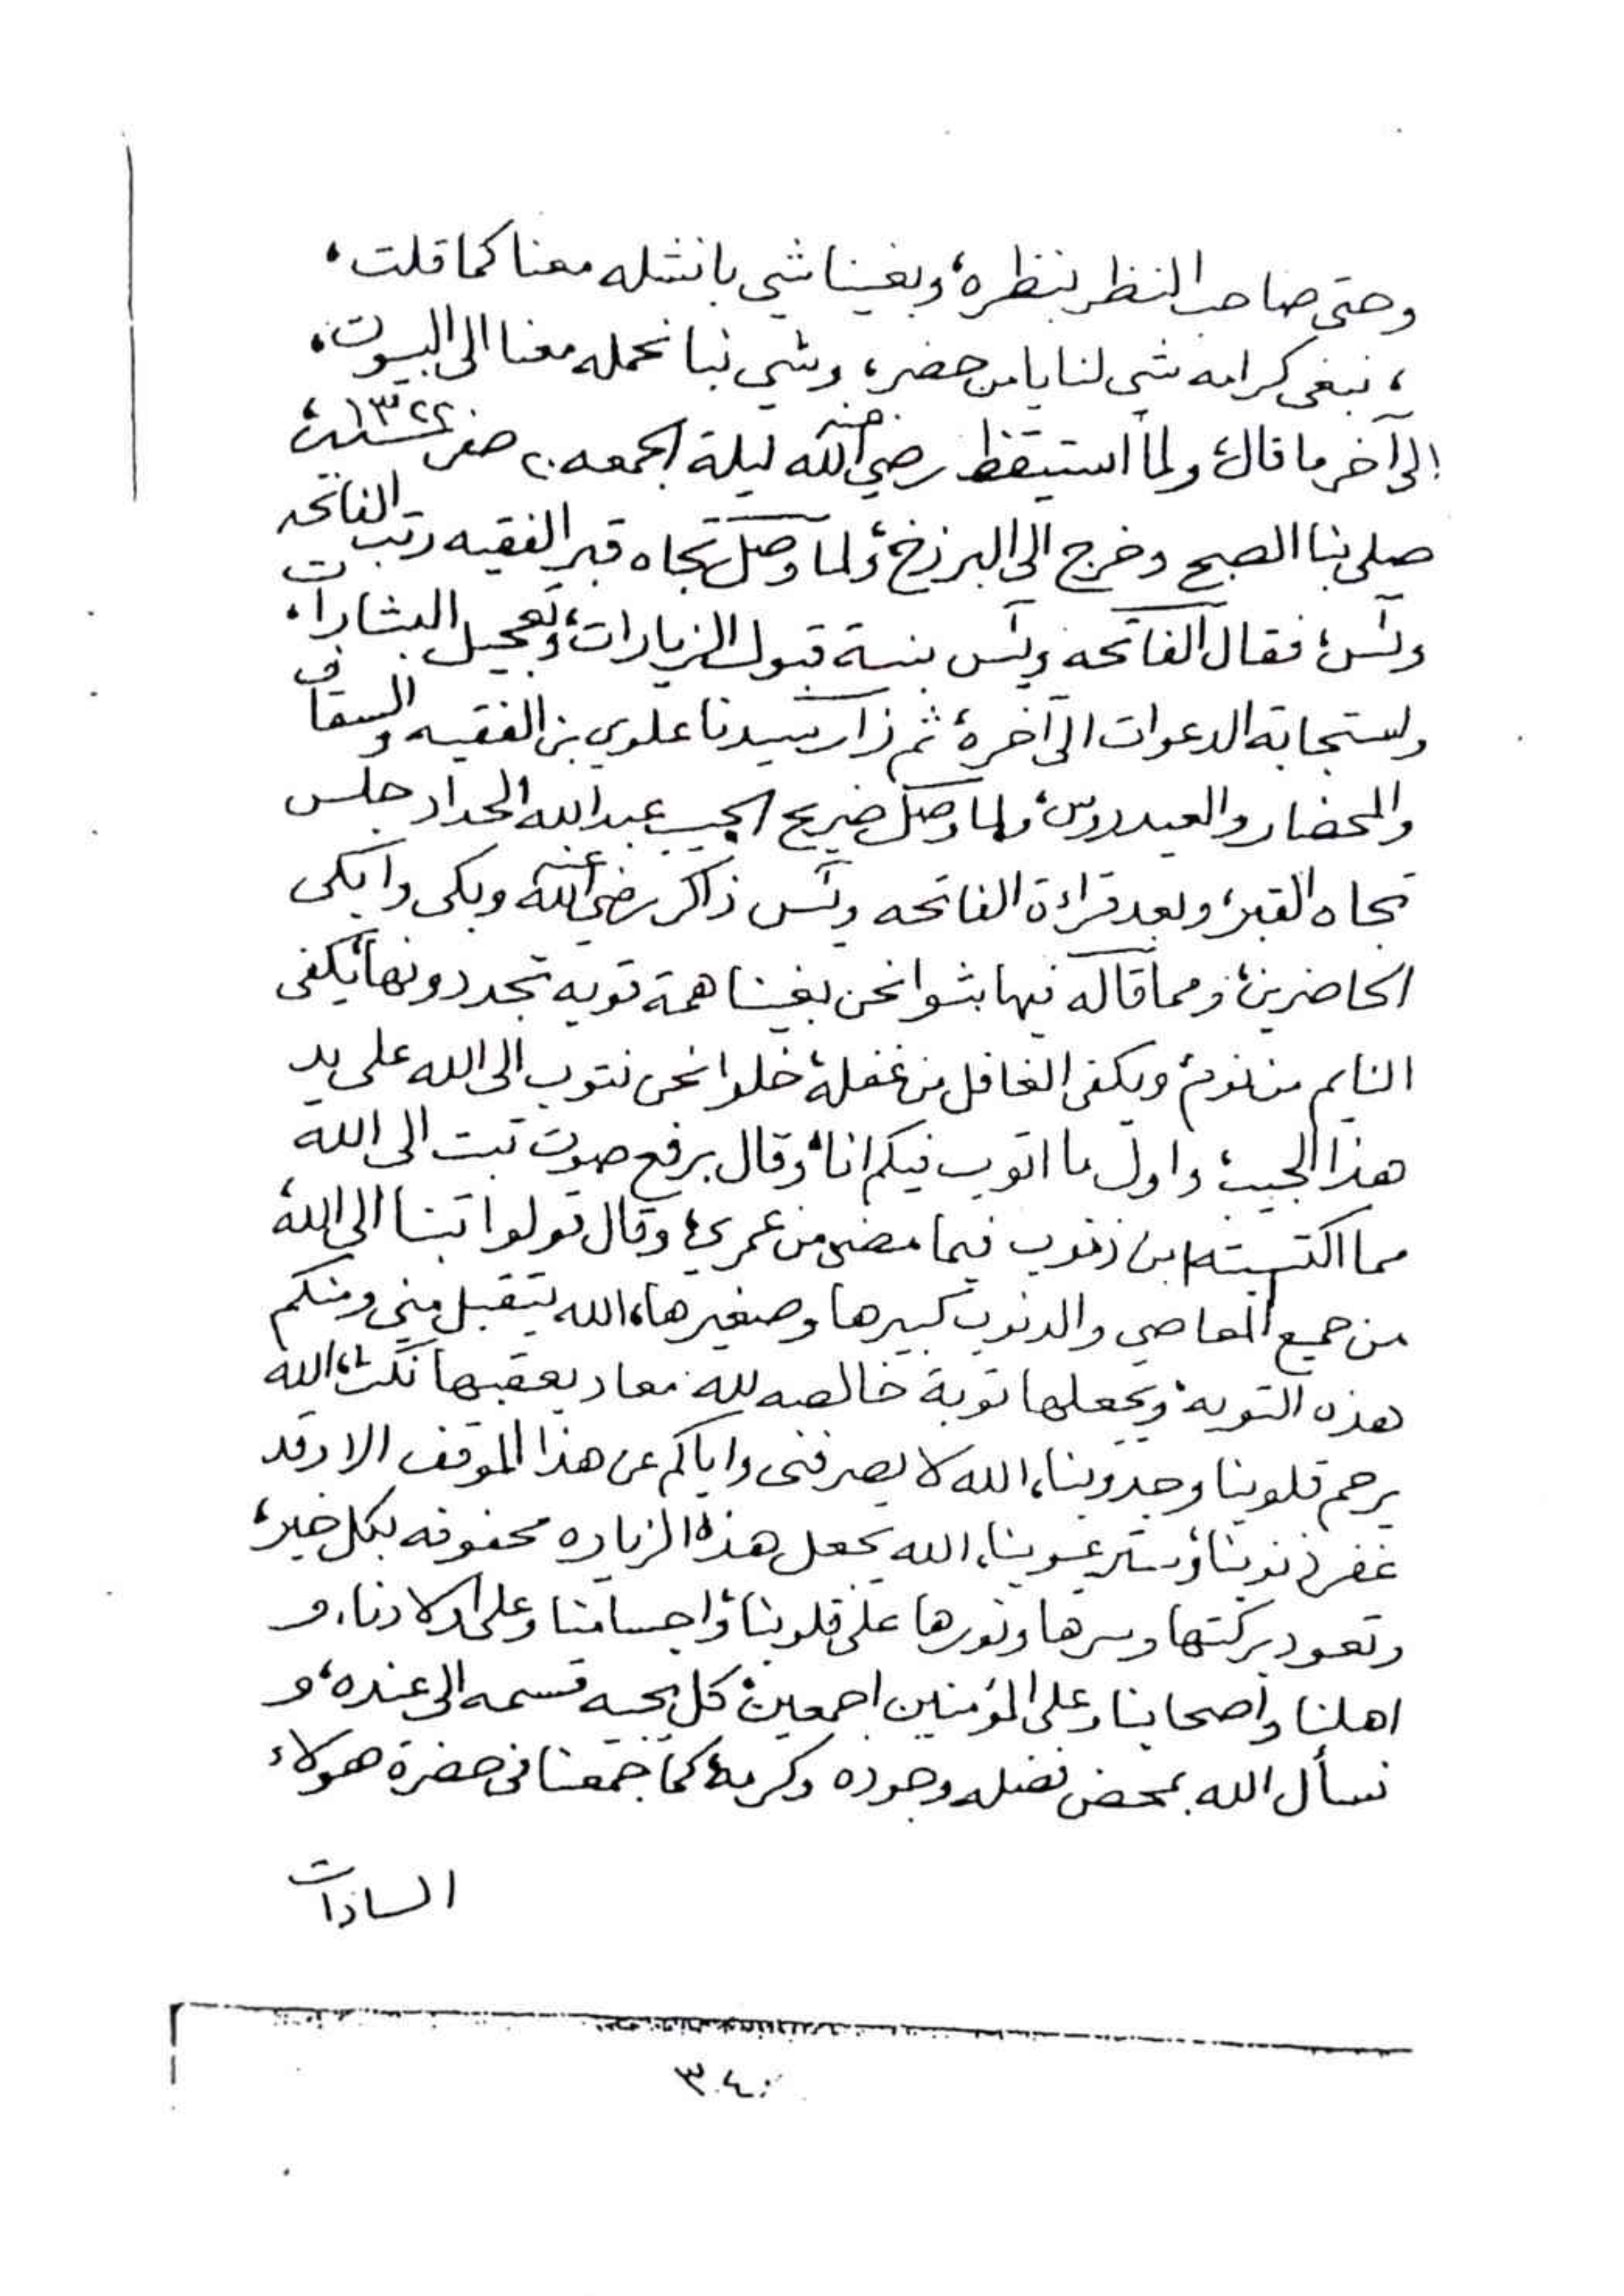 وحتى صاحب النظر بنظره، وبغينا شي بانشله معنا كما قلت،
، نبغى كرامه شي لنا يا من حضر، وشي نبا نحمله معنا الى البيوت،
إلى آخر ما قال، ولما استيقظ رضي الله عنه ليلة الجمعه ٢٠ صفر سنة ١٣٢٢،
صلى بنا الصبح وخرج الى البرزخ، ولما وصل تجاه قبر الفقيه رتب الفاتحه
ويس، فقال الفاتحه ويس بنية قبول الزيارات، وتعجيل البشارات،
واستجابة الدعوات الى آخره، ثم زار سيدنا علوي بن الفقيه والسقاف
والمحضار والعيدروس، ولما وصل ضريح الحبيب عبدالله الحداد جلس
تجاه القبر، وبعد قراءة الفاتحه ويس ذاكر رضي الله عنه وبكى وابكى
الحاضرين، ومما قاله فيها بثوا نحن بغينا همة قويه تجددونها، يكفى
النايم من نومه، ويكفى الغافل من غفلة، خلوا نحن نتوب الى الله على يد
هذا الحبيب، واول ما اتوب فيكم انا، وقال برفع صوت تبت الى الله
مما اكتسبته من ذنوب فيما مضى من عمري، وقال قولوا تبنا الى الله،
من جميع المعاصي والذنوب كبيرها وصغيرها، الله يتقبل مني ومنكم
هذه التوبه، ويجعلها توبة خالصه لله معاد يعقبها نكث، الله
يرحم قلوبنا وجدوبنا، الله لا يصرفنى واياكم عن هذا الموقف الا وقد
غفر ذنوبنا، وستر عيوبنا، الله يجعل هذه الزياره محفوفه بكل خير،
وتعود بركتها وسرها ونورها على قلوبنا، واجسامنا وعلى اولادنا، و
اهلنا واصحابنا وعلى المؤمنين اجمعين، كل يجيه قسمه الى عنده، و
نسأل الله بمحض فضله وجوده وكرمه، كما جمعنا في حضرة هولاء
السادات
٣٤٠